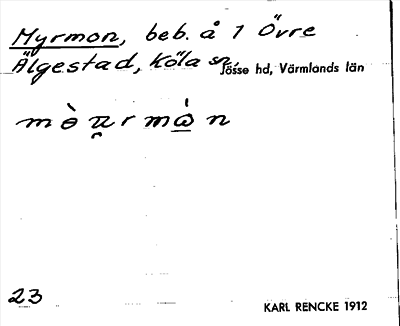 Myrmon, beb. å 1 Övre
Älgestad, Köla sn,
Jösse hd, Värmlands län
23
KARL RENCKE 1912